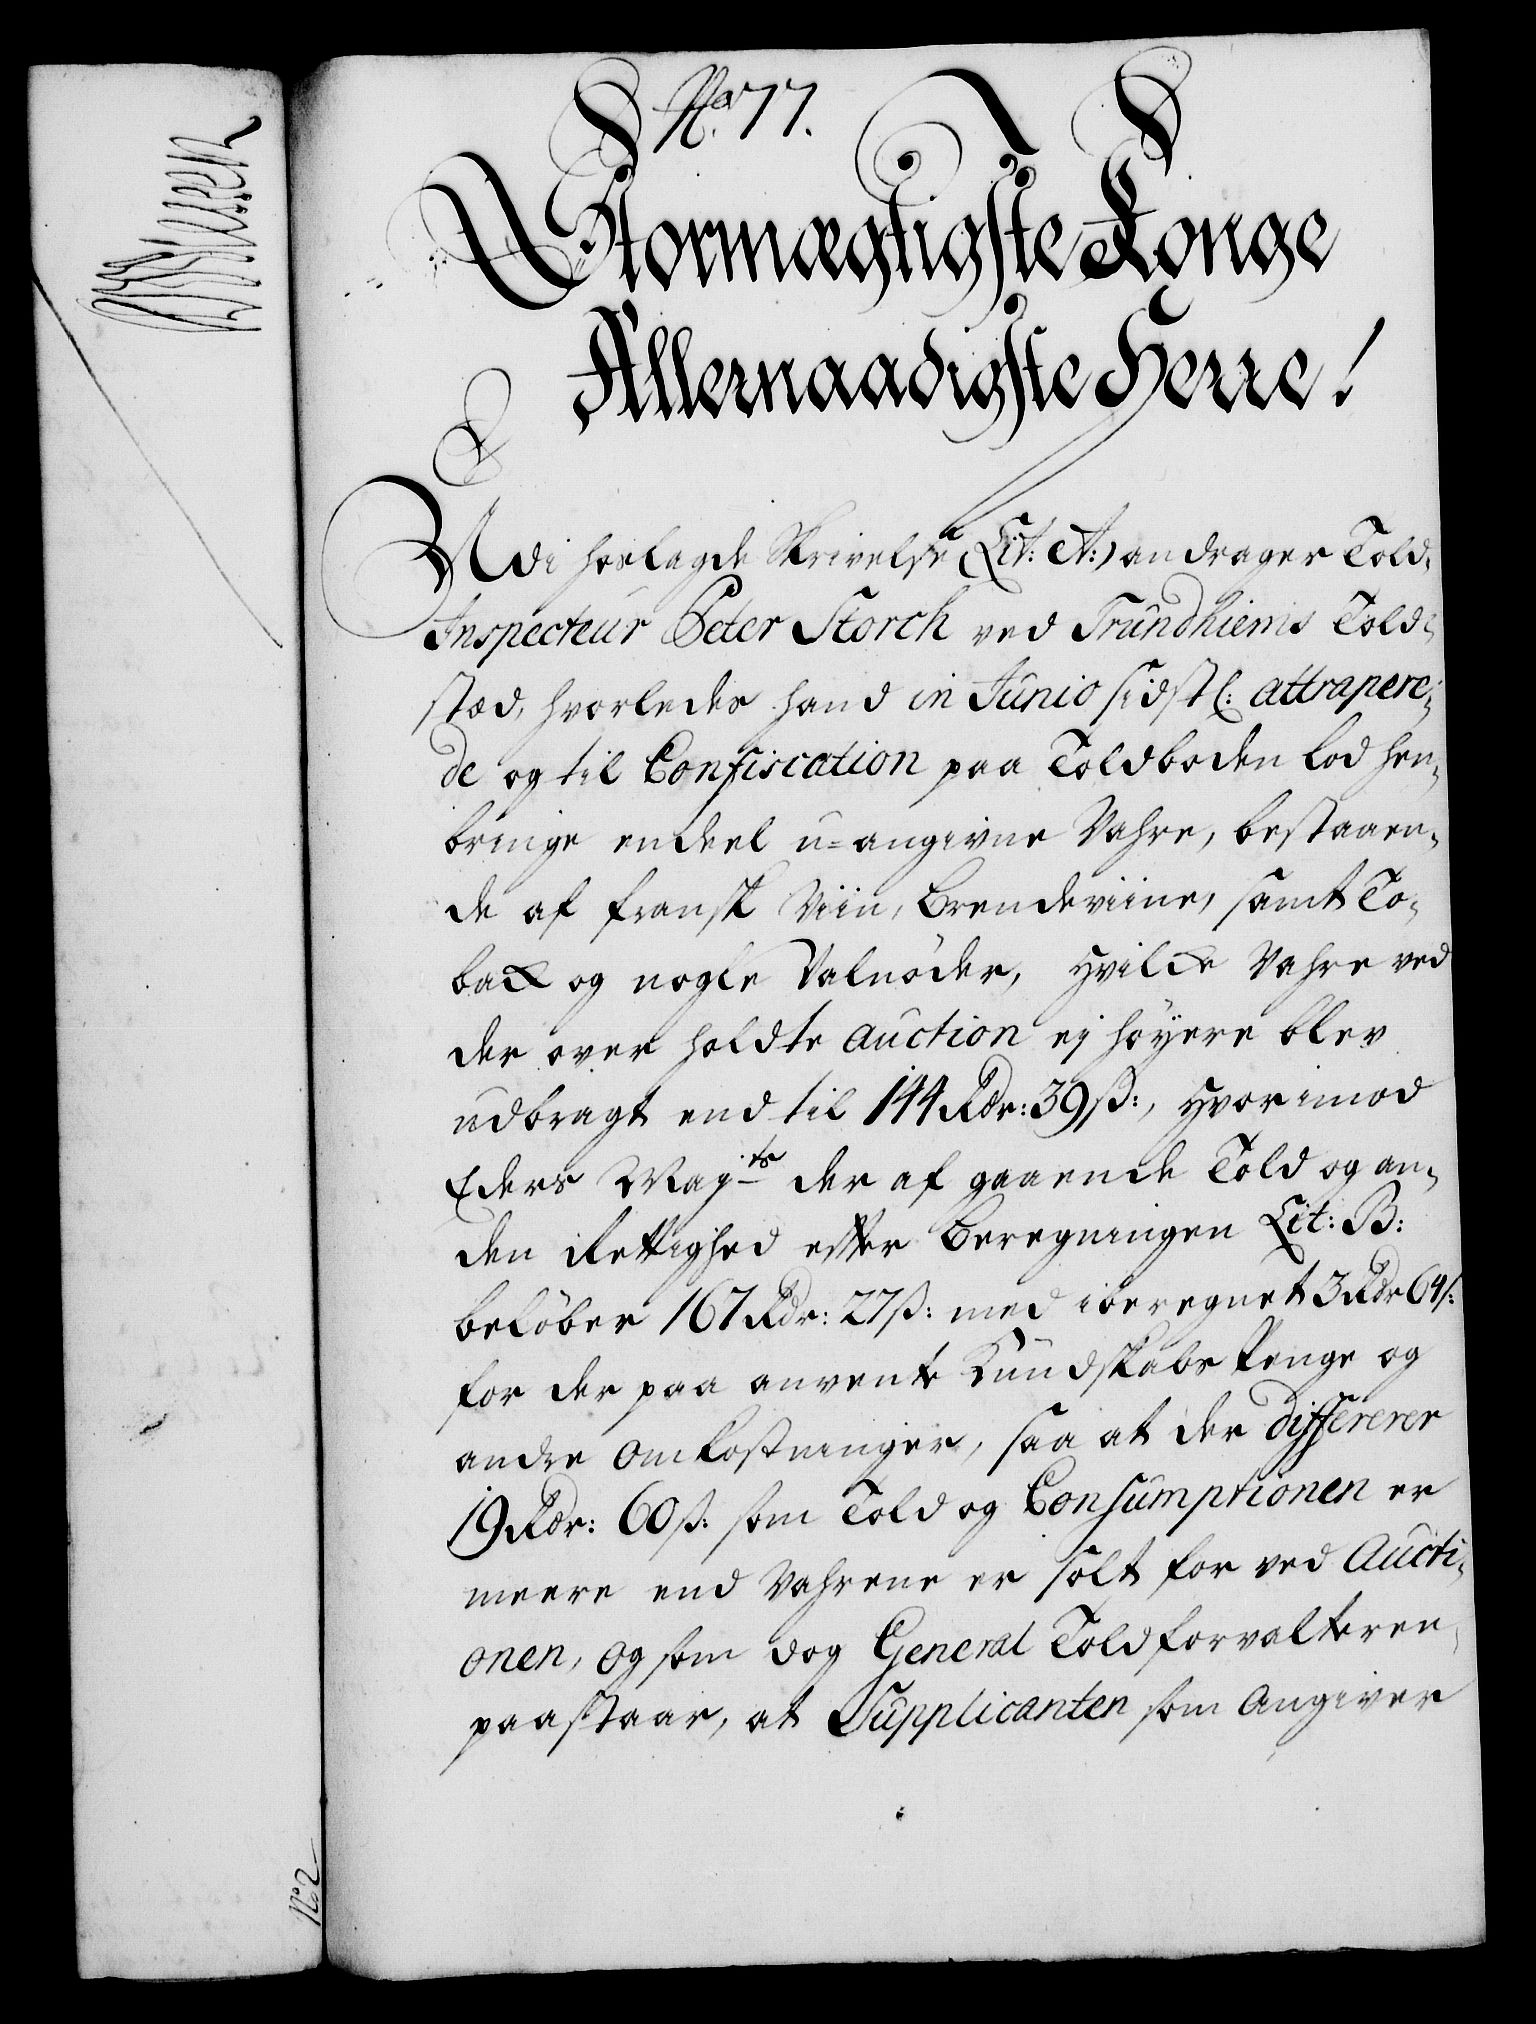 No. 77.
Stormægtigste Konge
Allernaadigste Herre!
Udi hoslagde Skrivelse (Lit: A:) andrager Told-
Inspecteur Peter Storch ved Trundhiems Told-
stæd, hvorledes hand in Junio sidstl: attrapere-
de og til Confiscation paa Toldboden lod hen-
bringe endeel u=angivne Vahre, bestaaen-
de af fransk Viin, Brendeviine, samt To-
back og nogle Valnöder, hvilcke Vahre ved
der over holdte auction ej höyere blev
udbragt end til 144 Rdr: 39 ß:, hvorimod
Eders Majts der af gaaende Told og an-
den Rettighed efter Beregningen Lit: B:
belöber 167 Rdr: 27 ß: med iberegnet 3 Rdr 64 ß:
for der paa anvente Kundskabs Penge og
andre Omkostninger, saa at der differerer
19 Rdr: 60 ß: som Told og Consumptionen er
meere end Vahrene er solt for ved Aucti-
onen, og som dog General Toldforvalteren
paastaar, at Supplicanten som Angiver
No 2